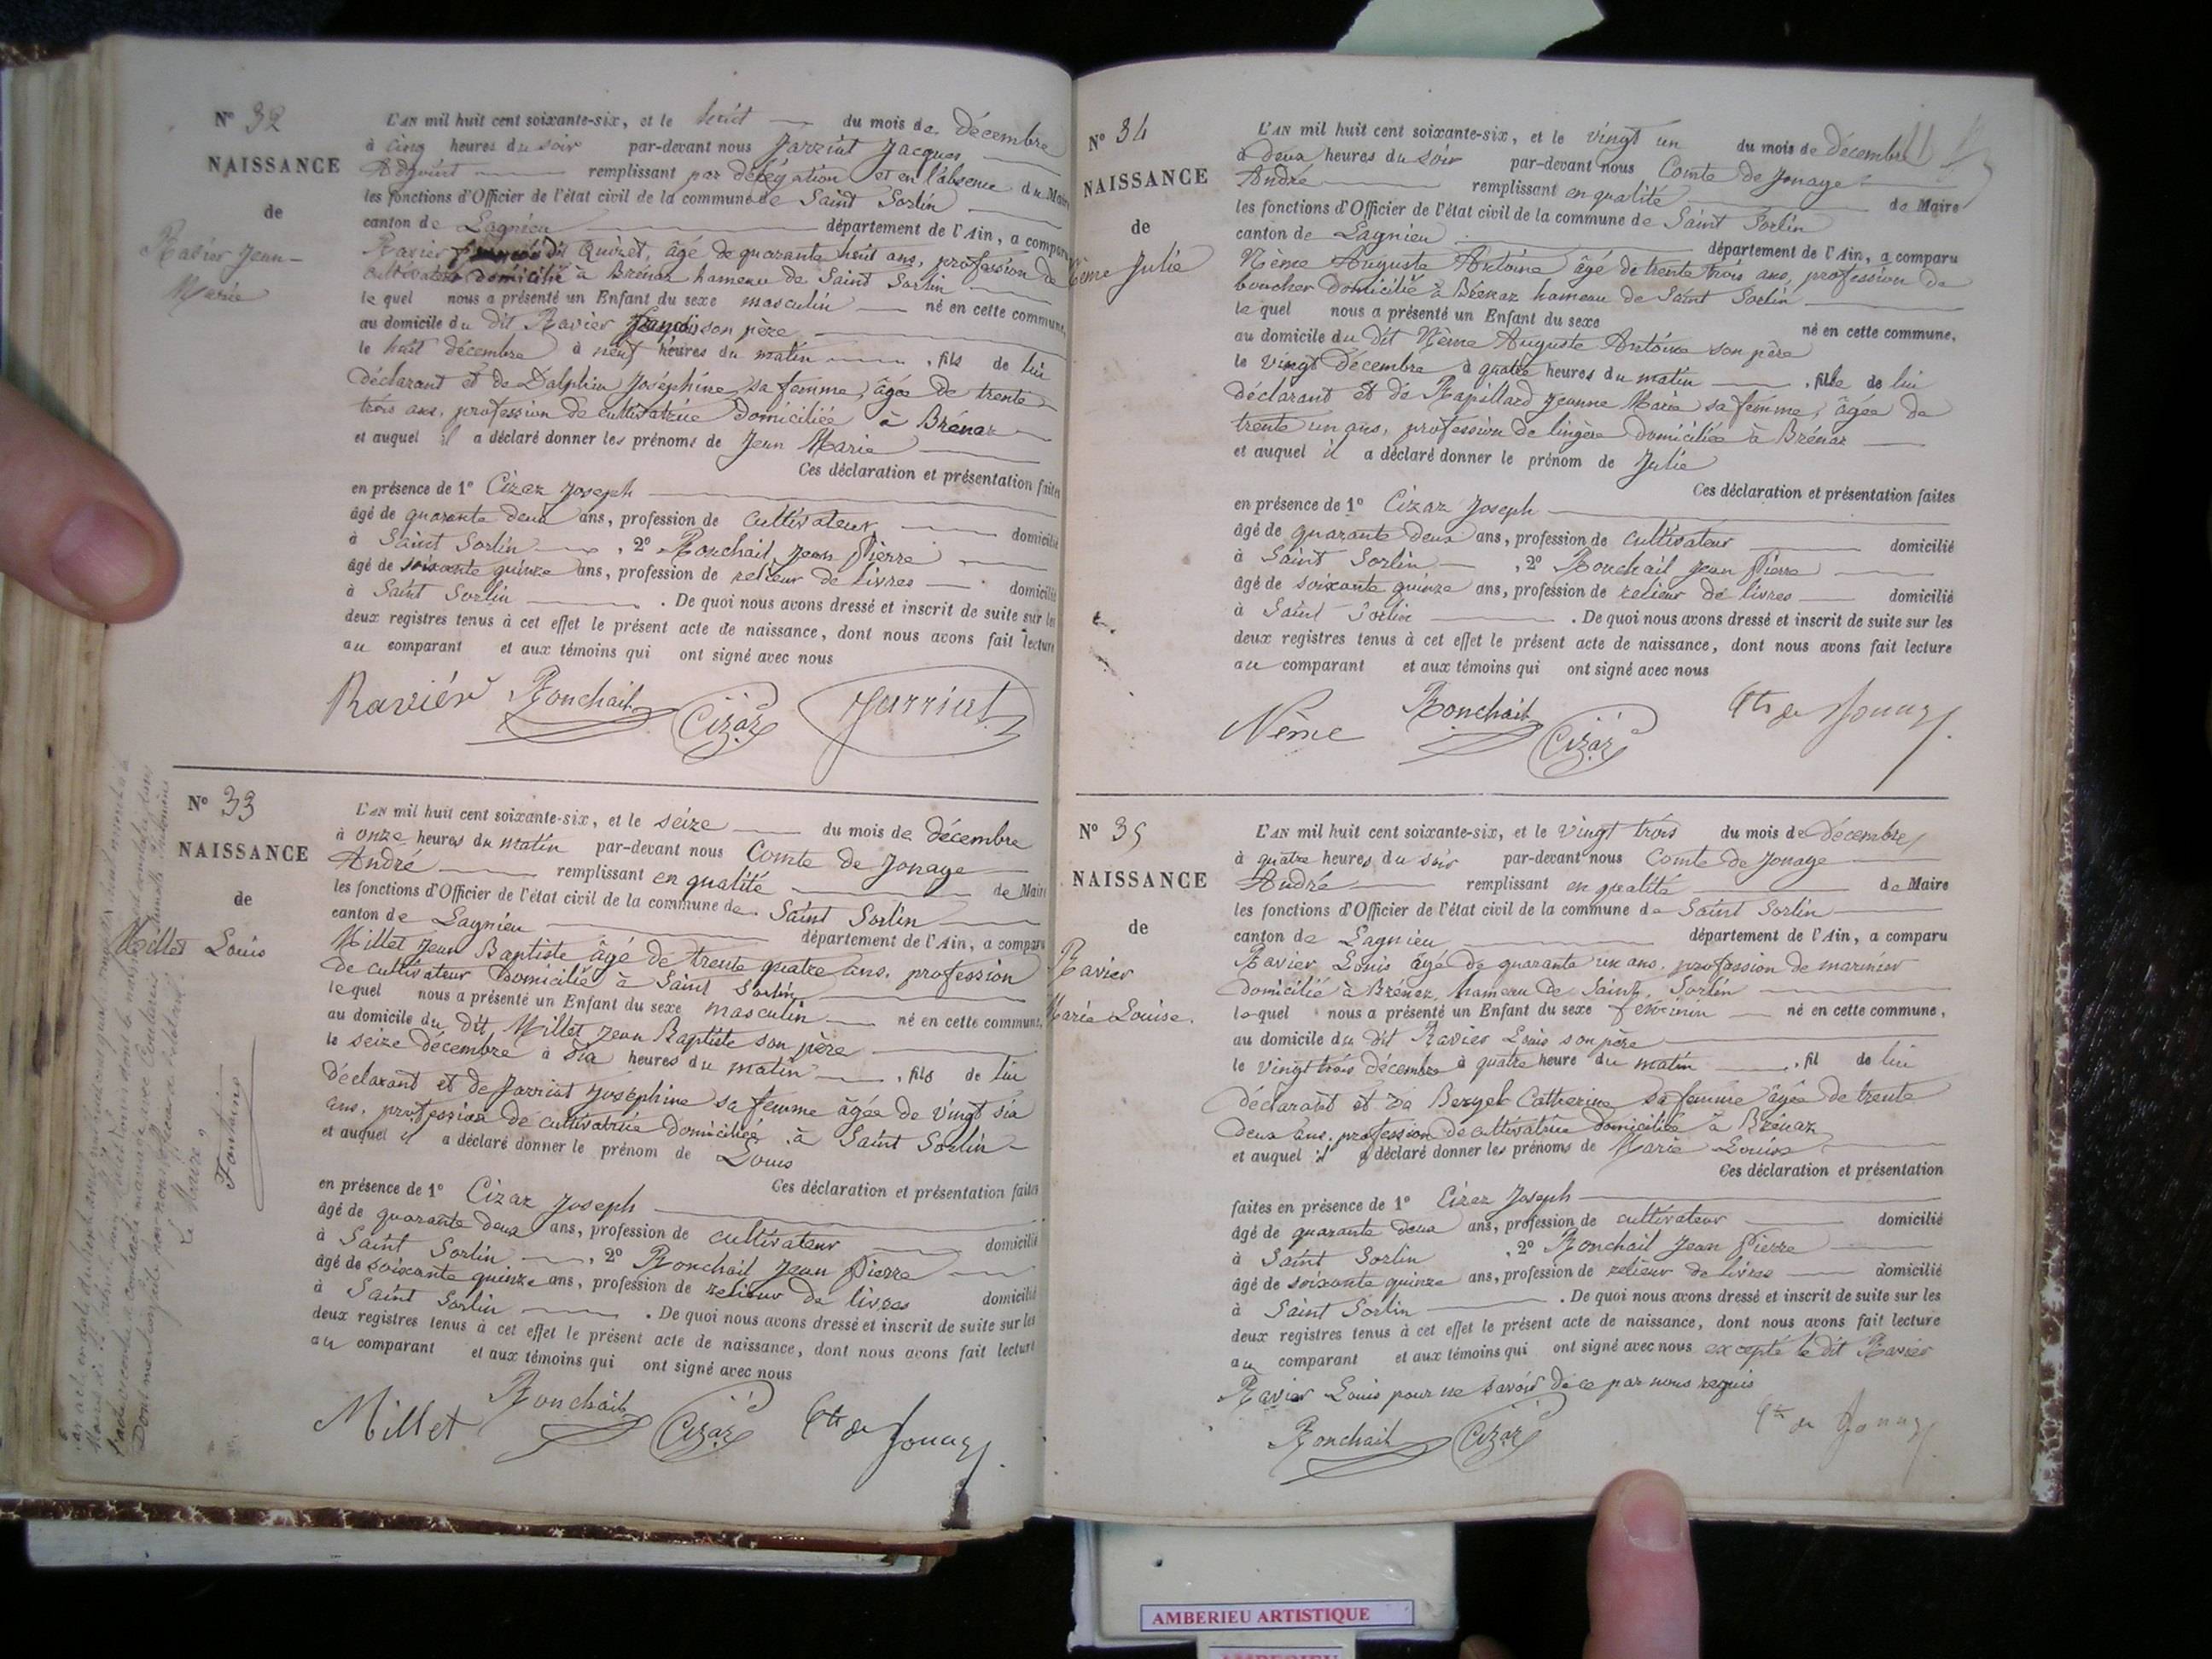 Nº 32
NAISSANCE
de
Ravier Jean-
Marie
L'AN mil huit cent soixante-six, et le huit du mois de décembre
à cinq heures du soir par-devant nous Jarriat Jacques
Adjoint remplissant par délégation et en l'absence du Maire
les fonctions d'Officier de l'état civil de la commune de Saint Sorlin
canton de Lagnieu département de l'Ain, a comparu
Ravier dit Quizet, âgé de quarante huit ans, profession de
cultivateur domicilié à Brénaz hameau de Saint Sorlin
le quel nous a présenté un Enfant du sexe masculin né en cette commune,
au domicile du dit Ravier son père
le huit décembre à neuf heures du matin , fils de lui
déclarant et de Dalphin Joséphine sa femme, âgée de trente
trois ans, profession de cultivatrice domiciliée à Brénaz
et auquel il a déclaré donner les prénoms de Jean Marie
Ces déclaration et présentation faites
en présence de 1º Cizaz Joseph
âgé de quarante deux ans, profession de cultivateur domicilié
à Saint Sorlin , 2º Ronchail Jean Pierre
âgé de soixante quinze ans, profession de relieur de livres domicilié
à Saint Sorlin . De quoi nous avons dressé et inscrit de suite sur les
deux registres tenus à cet effet le présent acte de naissance, dont nous avons fait lecture
au comparant et aux témoins qui ont signé avec nous
Raviér Ronchail Cizaz Jarriat
Nº 33
NAISSANCE
de
Millet Louis
Le Maire,
Fontaine
L'AN mil huit cent soixante-six, et le seize du mois de décembre
à onze heures du matin par-devant nous Comte de Jonage
André remplissant en qualité de Maire
les fonctions d'Officier de l'état civil de la commune de Saint Sorlin
canton de Lagnieu département de l'Ain, a comparu
Millet Jean Baptiste âgé de trente quatre ans, profession
de cultivateur domicilié à Saint Sorlin
lequel nous a présenté un Enfant du sexe masculin né en cette commune,
au domicile du dit Millet Jean Baptiste son père
le seize décembre à six heures du matin , fils de lui
déclarant et de Jarriat Joséphine sa femme âgée de vingt six
ans, profession de cultivatrice domiciliée à Saint Sorlin
et auquel il a déclaré donner le prénom de Louis
Ces déclaration et présentation faites
en présence de 1º Cizaz Joseph
âgé de quarante deux ans, profession de cultivateur domicilié
à Saint Sorlin , 2º Ronchail Jean Pierre
âgé de soixante quinze ans, profession de relieur de livres domicilié
à Saint Sorlin . De quoi nous avons dressé et inscrit de suite sur les
deux registres tenus à cet effet le présent acte de naissance, dont nous avons fait lecture
au comparant et aux témoins qui ont signé avec nous
Millet Ronchail Cizaz Cte de Jonage
Nº 34
NAISSANCE
de
Nème Julie
L'AN mil huit cent soixante-six, et le vingt un du mois de décembre
à deux heures du soir par-devant nous Comte de Jonage
André remplissant en qualité de Maire
les fonctions d'Officier de l'état civil de la commune de Saint Sorlin
canton de Lagnieu département de l'Ain, a comparu
Nème Auguste Antoine âgé de trente trois ans, profession de
boucher domicilié à Brénaz hameau de Saint Sorlin
le quel nous a présenté un Enfant du sexe né en cette commune,
au domicile du dit Nème Auguste Antoine son père
le vingt décembre à quatre heures du matin , fille de lui
déclarant et de Rapillard Jeanne Marie sa femme, âgée de
trente un ans, profession de lingère domiciliée à Brénaz
et auquel il a déclaré donner le prénom de Julie
Ces déclaration et présentation faites
en présence de 1º Cizaz Joseph
âgé de quarante deux ans, profession de cultivateur domicilié
à Saint Sorlin , 2º Ronchail Jean Pierre
âgé de soixante quinze ans, profession de relieur de livres domicilié
à Saint Sorlin . De quoi nous avons dressé et inscrit de suite sur les
deux registres tenus à cet effet le présent acte de naissance, dont nous avons fait lecture
au comparant et aux témoins qui ont signé avec nous
Nème Ronchail Cizaz Cte de Jonage
Nº 35
NAISSANCE
de
Ravier
Marie Louise.
L'AN mil huit cent soixante-six, et le vingt trois du mois de décembre
à quatre heures du soir par-devant nous Comte de Jonage
André remplissant en qualité de Maire
les fonctions d'Officier de l'état civil de la commune de Saint Sorlin
canton de Lagnieu département de l'Ain, a comparu
Ravier Louis âgé de quarante un ans, profession de marinier
domicilié à Brénaz, hameau de Saint Sorlin
lequel nous a présenté un Enfant du sexe féminin né en cette commune,
au domicile du dit Ravier Louis son père
le vingt trois décembre à quatre heure du matin , fil de lui
déclarant et de Berger Catherine sa femme âgée de trente
deux ans, profession de cultivatrice domiciliée à Brénaz
et auquel il a déclaré donner les prénoms de Marie Louise
Ces déclaration et présentation
faites en présence de 1º Cizaz Joseph
âgé de quarante deux ans, profession de cultivateur domicilié
à Saint Sorlin , 2º Ronchail Jean Pierre
âgé de soixante quinze ans, profession de relieur de livres domicilié
à Saint Sorlin . De quoi nous avons dressé et inscrit de suite sur les
deux registres tenus à cet effet le présent acte de naissance, dont nous avons fait lecture
au comparant et aux témoins qui ont signé avec nous excepté le dit Ravier
Ravier Louis pour ne savoir de ce par nous requis
Ronchail Cizaz Cte de Jonage
AMBERIEU ARTISTIQUE
AMBERIEU